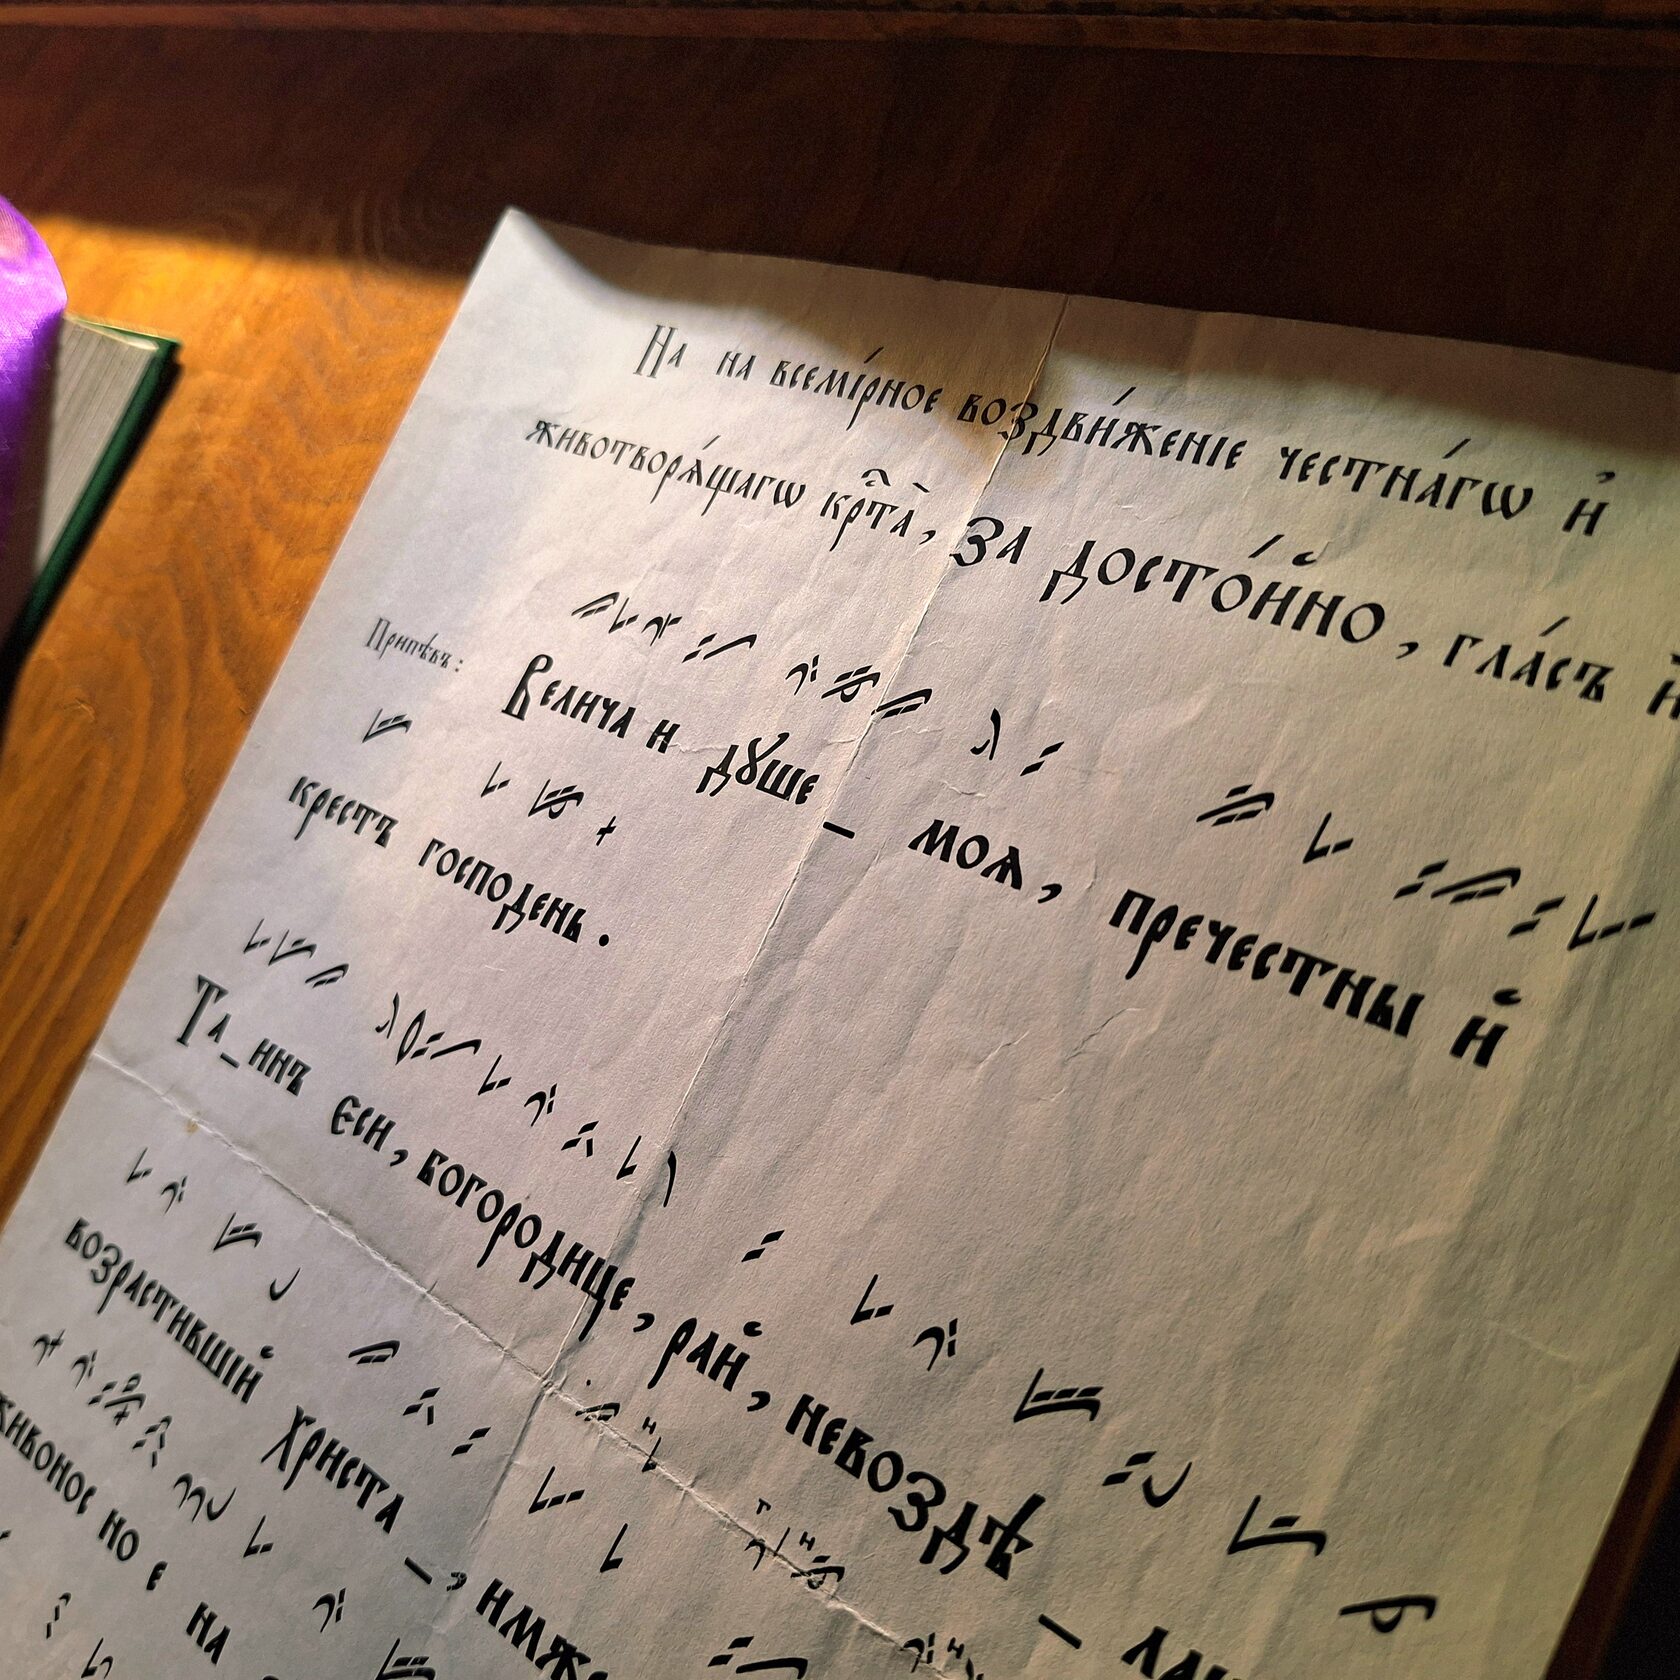 На на всемі́рное воздви́женіе честна́гѡ и҆
животворѧ́щагѡ крⷭ҇та̀, за досто́йно, гла́съ
Припѣвъ: Велича и дꙋше – моѧ, пречестны й
крестъ господень.
Та_инъ єси, богородице, рай, невоздѣ – лан
возрастившїй Христа –, имже
живонос но е на